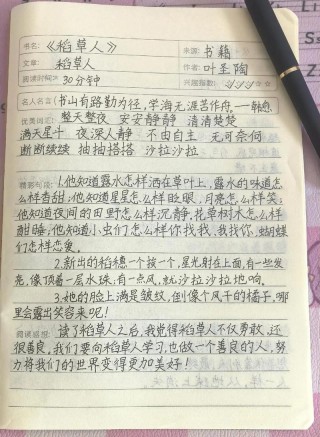 书名:《稻草人》 来源:书籍
文章:稻草人 作者:叶圣陶
阅读时间:30分钟 兴趣指数:
名人名言(书山有路勤为径,学海无涯苦作舟,—韩愈
优美词汇:整天整夜 安安静静 清清楚楚
满天星斗 夜深人静 不由自主 无可奈何
断断续续 抽抽搭搭 沙拉沙拉
精彩句段:1.他知道露水怎样洒在草叶上,露水的味道怎
么样香甜;他知道星星怎么样眨眼,月亮怎么样笑;
他知道夜间的田野怎么样沉静,花草树木怎么样
酣睡;他知道小虫们怎么样你找我,我找你,蝴蝶
们怎样恋爱。
2.新出的稻穗一个挨一个,星光射在上面,有一些发
亮,像顶着一层水珠,有一点风,就沙拉沙拉地响。
3.她的脸上满是皱纹,倒像个风干的橘子,哪
里会露出笑容来呢!
阅读感悟:读了稻草人之后,我觉得稻草人不仅勇敢,还
很善良,我们要向稻草人学习,也做一个善良的人,努
力将我们的世界变得更加美好!